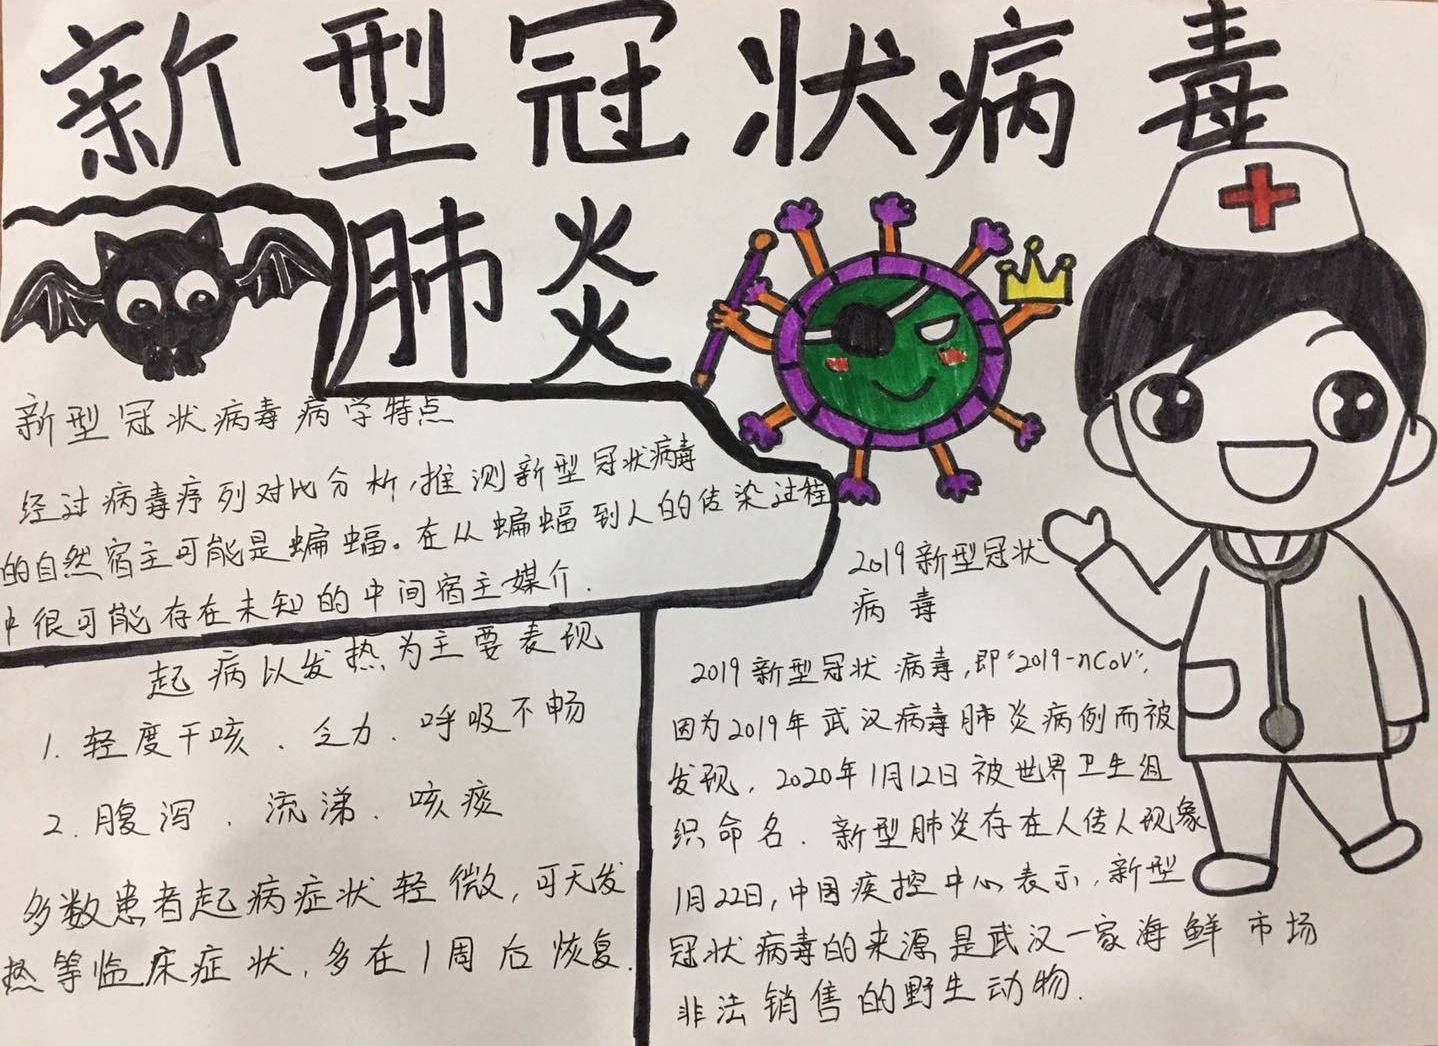 新型冠状病毒
肺炎
新型冠状病毒病学特点
经过病毒序列对比分析,推测新型冠状病毒
的自然宿主可能是蝙蝠。在从蝙蝠到人的传染过程
中很可能存在未知的中间宿主媒介.
起病以发热为主要表现
1. 轻度干咳、乏力、呼吸不畅
2. 腹泻、流涕、咳痰
多数患者起病症状轻微,可无发
热等临床症状,多在1周后恢复.
2019新型冠状
病毒
2019新型冠状病毒,即“2019-nCoV”,
因为2019年武汉病毒肺炎病例而被
发现,2020年1月12日被世界卫生组
织命名.新型肺炎存在人传人现象
1月22日,中国疾控中心表示,新型
冠状病毒的来源是武汉一家海鲜市场
非法销售的野生动物.